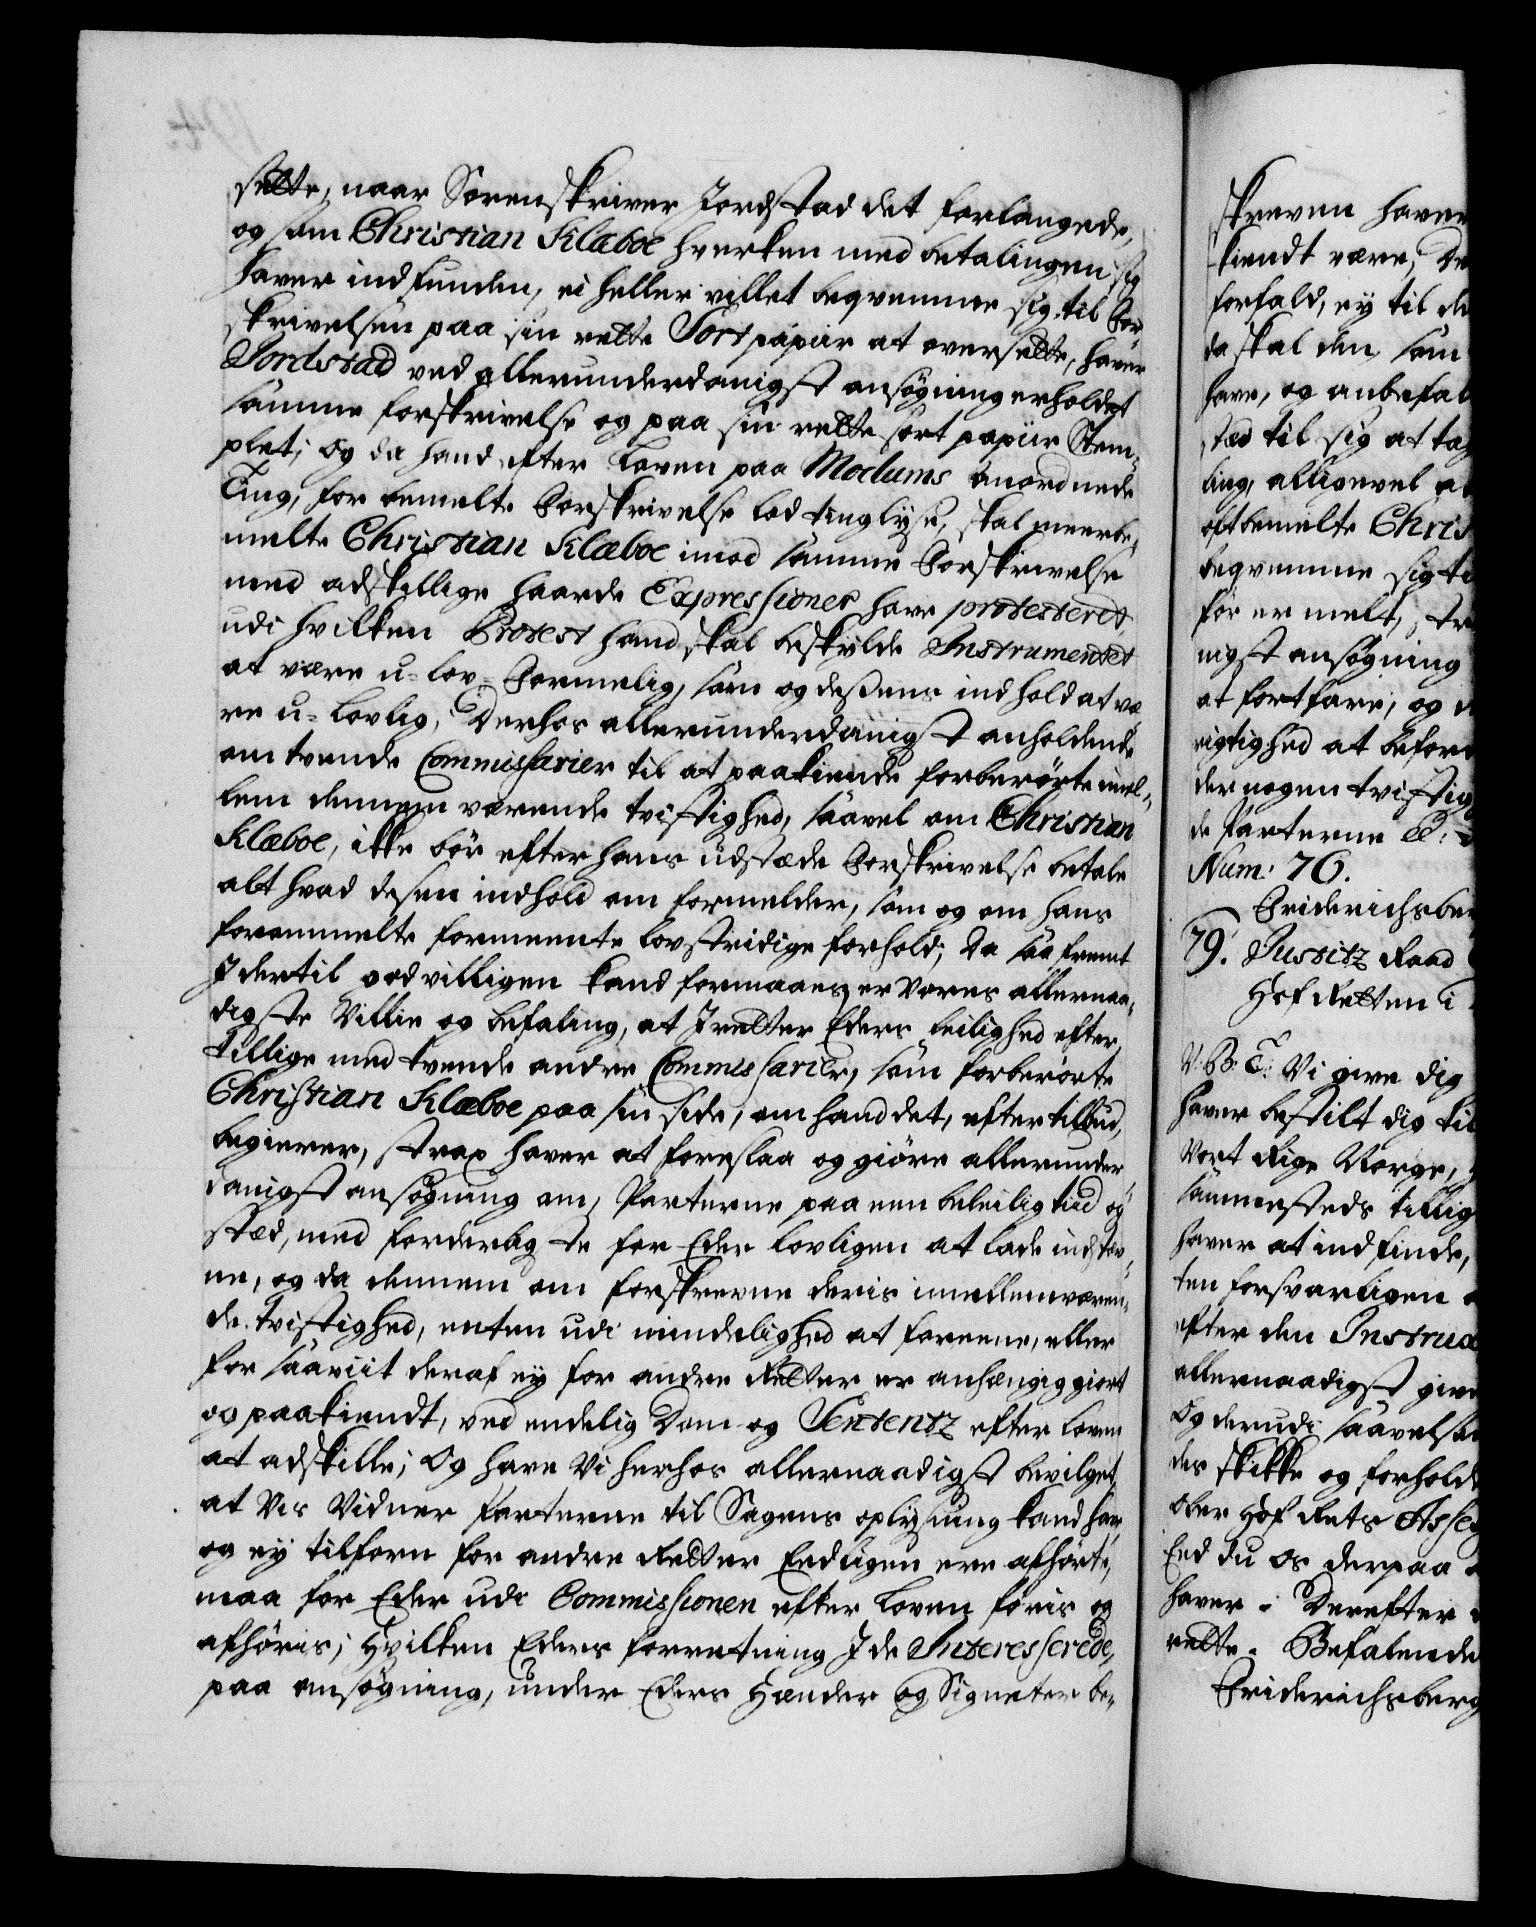 sætte, naar Sorenskriver Jordstad det forlangede,
og som Christian Klæboe hverken med betalingen sig
haver indfunden, ei heller villet beqvemme sig til For-
skrivelsen paa sin rette Sort papiir at oversætte, haver
Jordstad ved allerunderdanigst ansøgning erholdet
samme forskrivelse og paa sin rette sort papiir Stem-
plet; og da hand efter Loven paa Modums anordnede
Ting, for bemelte Forskrivelse lod tinglyse, skal meerbe-
melte Christian Klæboe imod samme Forskrivelse
med adskillige haarde Expressioner have protesteret,
udi hvilken Protest hand skal beskylde Instrumentet
at være u-lov-Formelig, som og dessens indhold at væ-
re u-lovlig, Derhos allerunderdanigst anholdende
om tvende Commissarier til at paakiende forberørte imel-
lem dennem værende tvistighed, saavel om Christian
Klæboe, ikke bør efter hans udstæde Forskrivelse betale
alt hvad desen indhold om formelder, som og om hans
forommelte formeente lovstridige forhold; Da saafremt
I dertil godvilligen kand formaaes, er Vores allernaa-
digste Villie og befaling, at I retter Eders leilighed efter,
Tillige med tvende andre Commissarier, som forberørte
Christian Klæboe paa sin side, om hand det, efter tilbud,
begierer, strax haver at foreslaa og giøre allerunder-
danigst ansøgning om, Parterne paa een beleilig tiid og
stæd, med forderligste for Eder lovligen at lade indstev-
ne, og da dennem om forskrevne deris imellemværen-
de tvistighed, enten udi mindelighed at foreene, eller
for saaviit deraf ey for andre Retter er anhængiggiort
og paakiendt, ved endelig Dom og Sententz efter loven
at adskille; Og have Vi herhos allernaadigst bevilget,
at Vis Vidner Parterne til Sagens oplysning kand have,
og ey tilforn for andre Retter Eedligen ere afhørte,
maa for Eder udi Commissionen efter Loven føris og
afhøris; Hvilken Eders forretning I de Interesserede,
paa ansøgning, under Eders Hænder og Signeter be-
skreven haver
kiendt være; De
forfald, ey til de
da skal den, som
have, og anbefal
stæd til sig at tag
ling, alligevel a
oftbemelte Chris
beqvemme sig ti
før er melt, st
nigst ansøgning
at fortfare; og
rigtighed at befor
der nogen tvistig
de Parterne
Num: 76.
Friderichsber
79. Justitz Raad
Hof Retten i
V. G. T: Vi give dig
haver bestilt dig til
Vort Rige Norge,
sammesteds tillig
haver at indfinde,
ten forsvarligen
efter den Instrux
allernaadigst give
Og derudi saavelsom
des skikke og forholde
Ober Hof Rets Asses
Eed du os derpaa
haver. Derefter
rette. Befalende
Friderichsberg